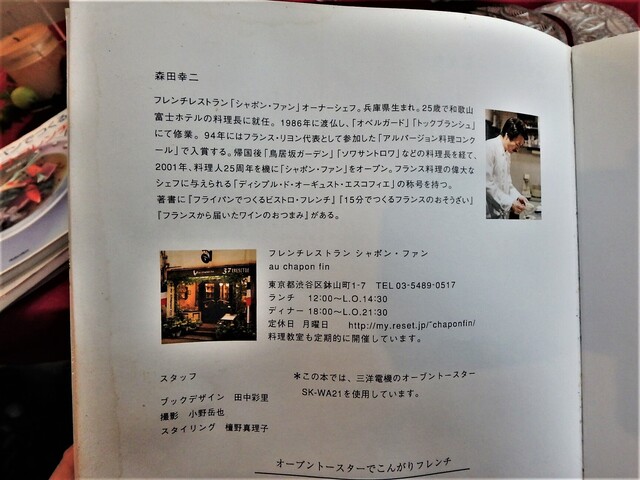 森田幸二
フレンチレストラン「シャポン・ファン」オーナーシェフ。兵庫県生まれ。25歳で和歌山
富士ホテルの料理長に就任。1986年に渡仏し、「オベルガード」「トックブランシュ」
にて修業。94年にはフランス・リヨン代表として参加した「アルパージョン料理コンク
ール」で入賞する。帰国後「鳥居坂ガーデン」「ソワサントロワ」などの料理長を経て、
2001年、料理人25周年を機に「シャポン・ファン」をオープン。フランス料理の偉大な
シェフに与えられる「ディシプル・ド・オーギュスト・エスコフィエ」の称号を持つ。
著書に『フライパンでつくるビストロ・フレンチ』『15分でつくるフランスのおそうざい』
『フランスから届いたワインのおつまみ』がある。
フレンチレストラン シャポン・ファン
au chapon fin
東京都渋谷区鉢山町1-7 TEL 03-5489-0517
ランチ 12:00〜L.O.14:30
ディナー 18:00〜L.O.21:30
定休日 月曜日 http://my.reset.jp/~chaponfin/
料理教室も定期的に開催しています。
スタッフ
ブックデザイン 田中彩里
撮影 小野岳也
スタイリング 檀野真理子
＊この本では、三洋電機のオーブントースター
SK-WA21を使用しています。
オーブントースターでこんがりフレンチ